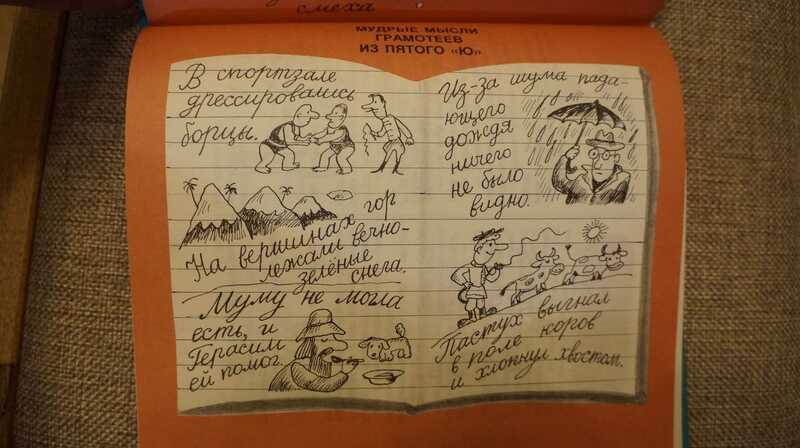 смеха
МУДРЫЕ МЫСЛИ
ГРАМОТЕЕВ
ИЗ ПЯТОГО «Ю»
В спортзале
дрессировались
борцы.
На вершинах гор
лежали вечно-
зелёные
снега.
Муму не могла
есть, и
Герасим
ей помог.
Из-за шума пада-
ющего
дождя
ничего
не было
видно.
Пастух выгнал
в поле коров
и хлопнул хвостом.